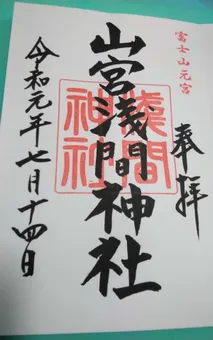 富士山元宮
奉拝
山宮浅間神社
浅間神社
令和元年七月十四日